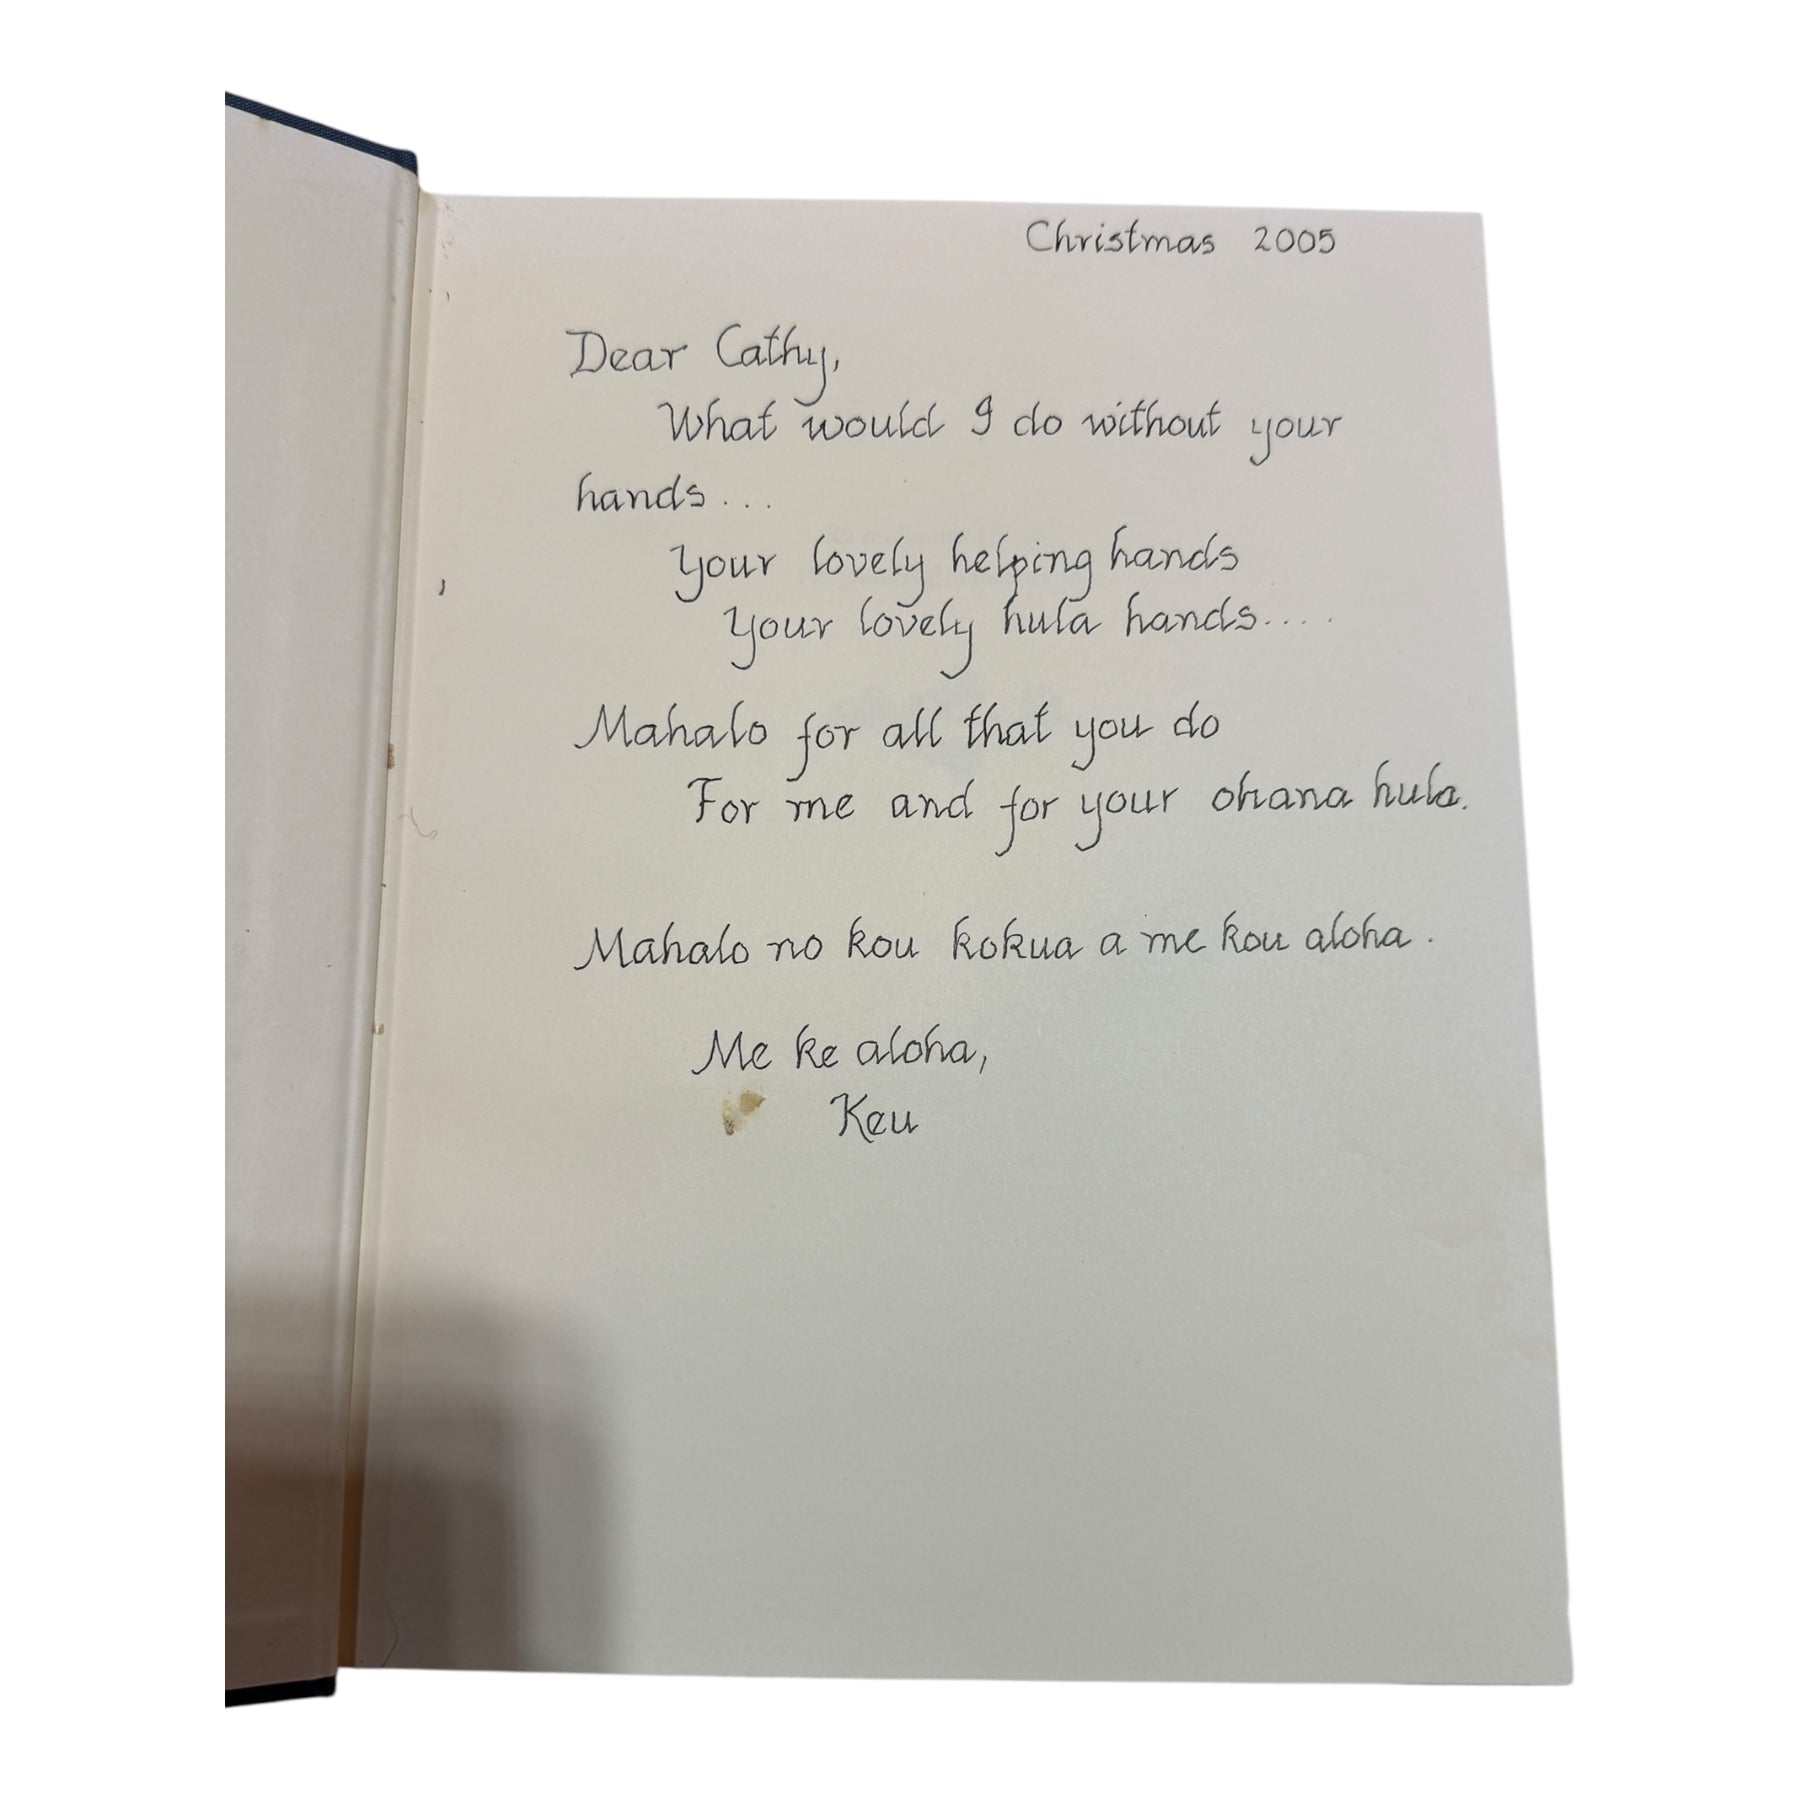 Christmas 2005
Dear Cathy,
What would I do without your
hands...
Your lovely helping hands
Your lovely hula hands....
Mahalo for all that you do
For me and for your ohana hula.
Mahalo no kou kokua a me kou aloha.
Me ke aloha,
Keu